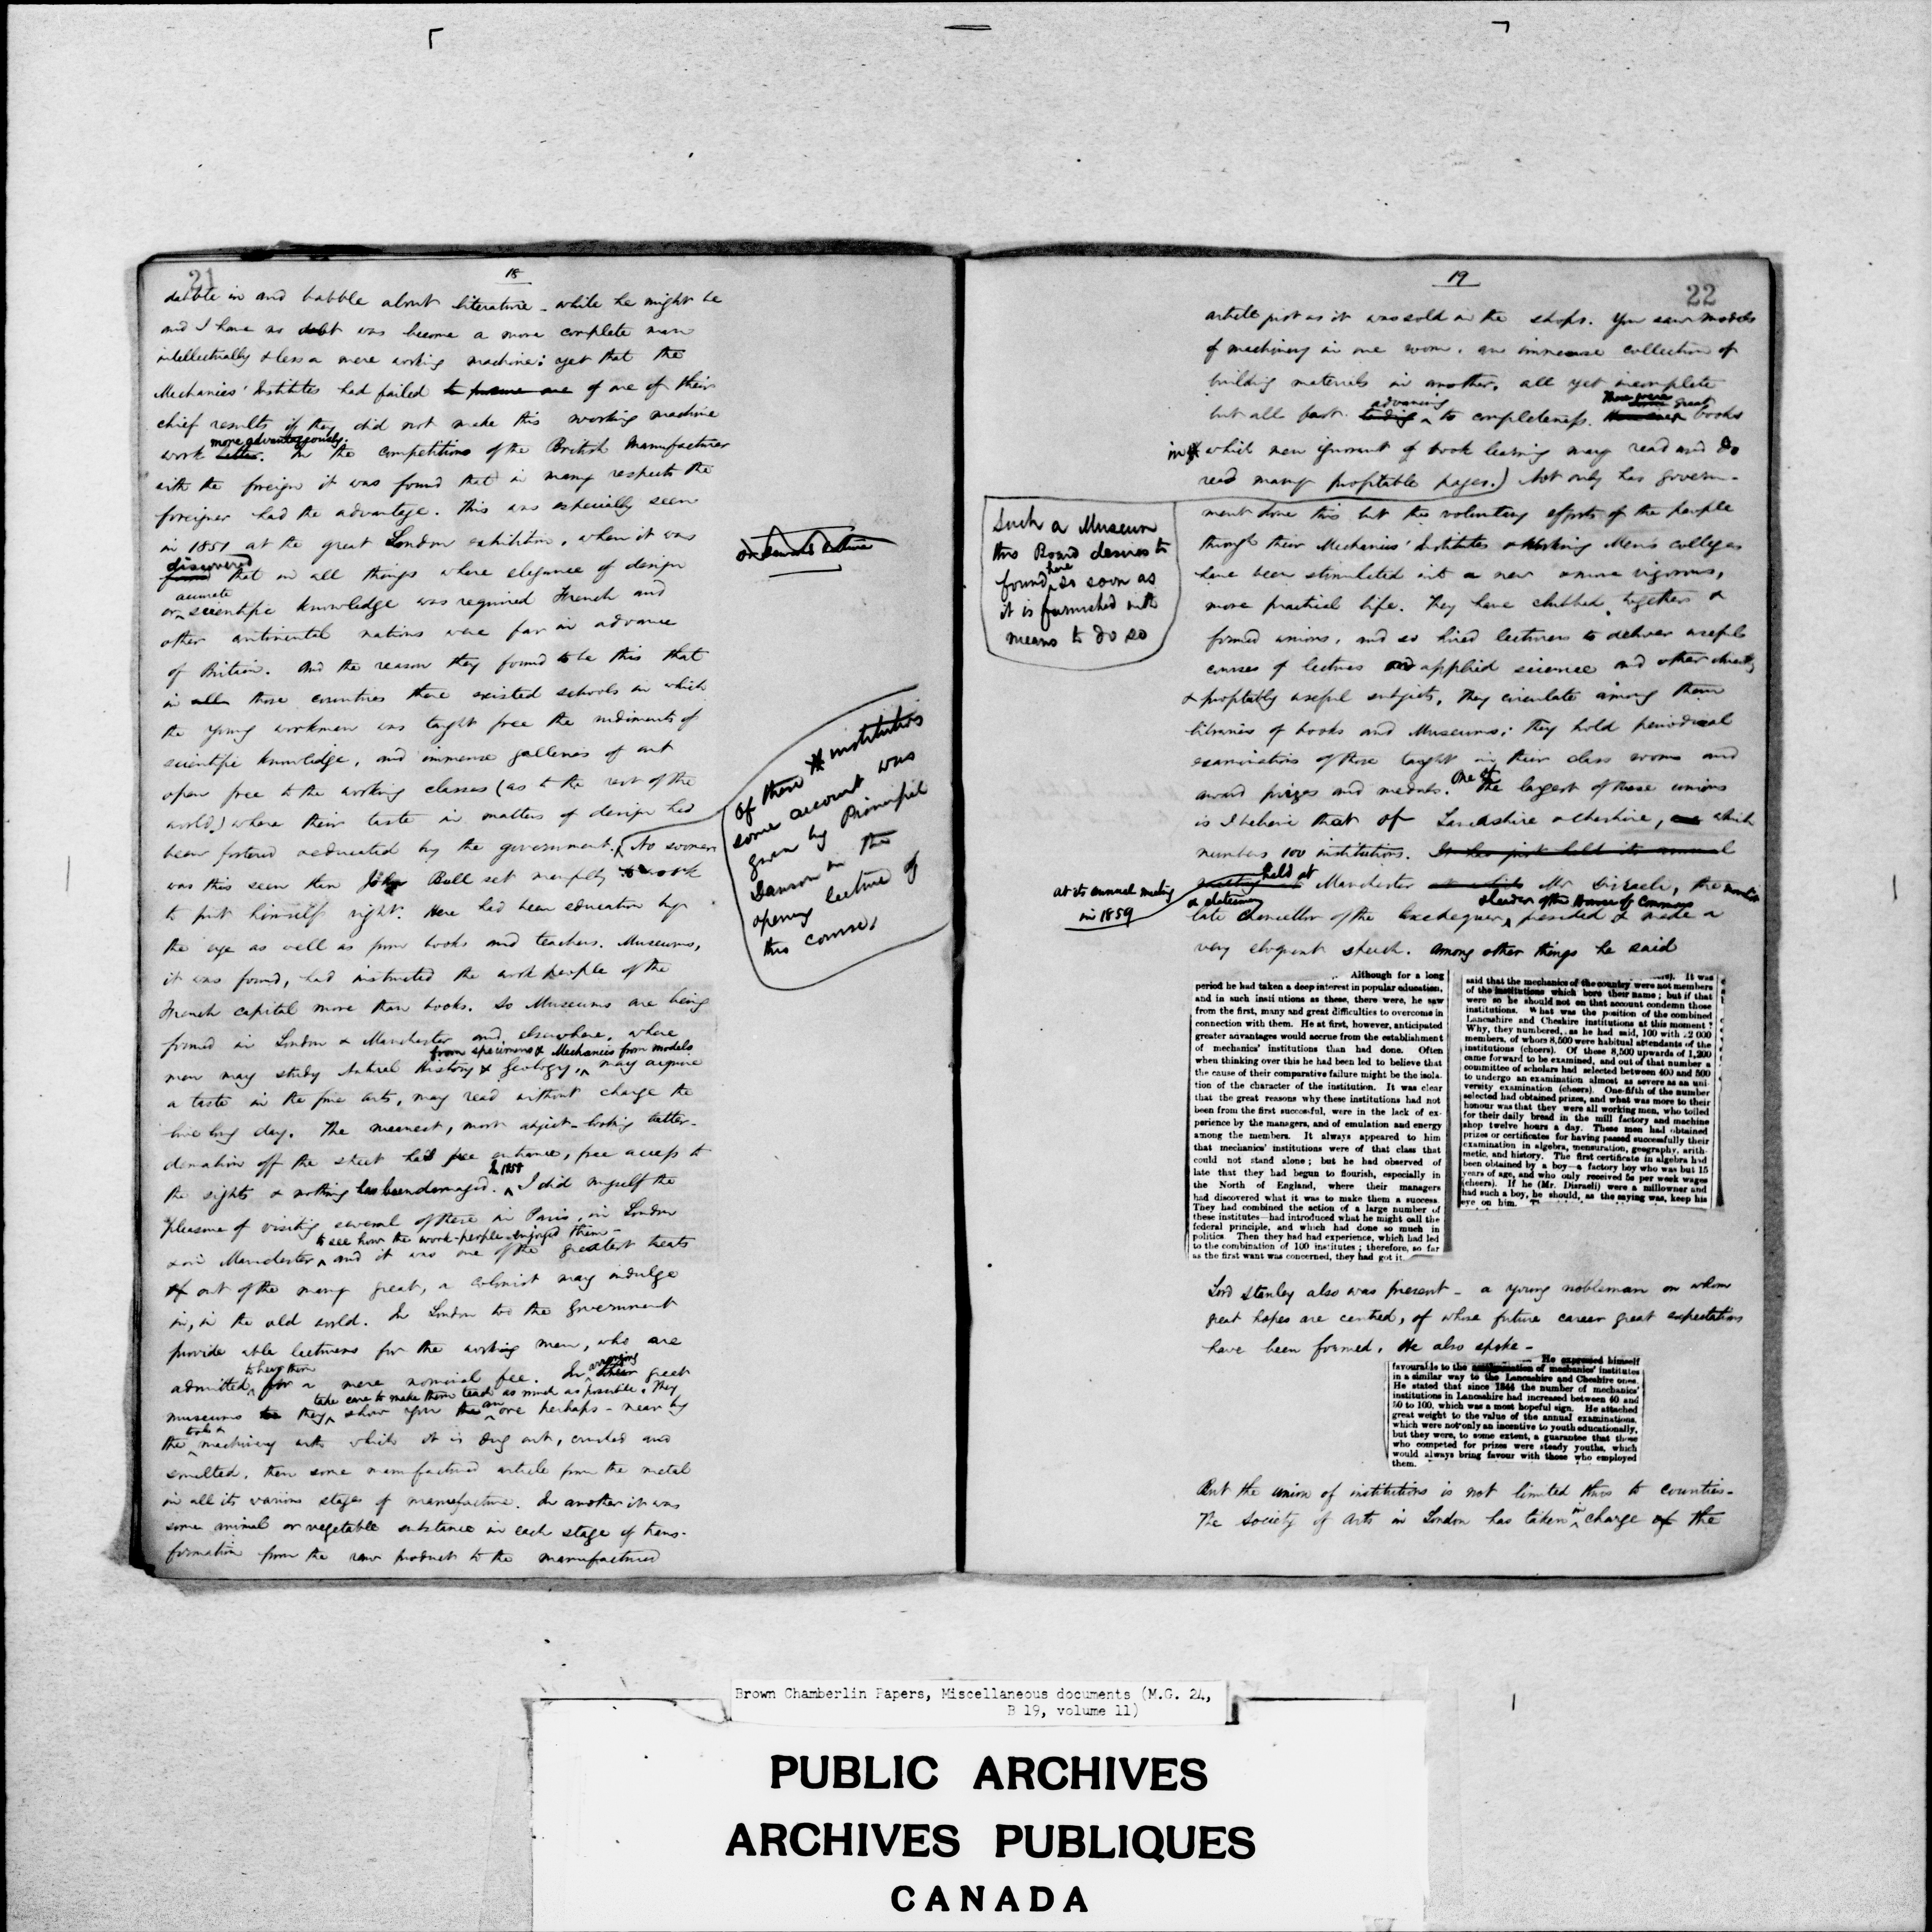 21
18
dabble in and babble about literature - while he might be
and I have no dobt was become a more complete man
intellectually & less a mere working machine: yet that the
Mechanics' Institutes had failed of one of their
chief results if they did not make this working machine
more advantageously.
work better. In the competitions of the British Manufacturer
with the foreign it was found that in many respects the
foreigner had the advantage. This was especially seen
in 1851 at the great London exhibition, when it was
discovered
found that in all things where elegance of design
accurate
or scientific knowledge was required French and
other continental nations were far in advance
of Britain. And the reason they found to be this that
in all those countries there existed schools in which
the young workmen was taught free the rudiments of
scientific knowledge, and immense galleries of art
open free to the working classes (as to the rest of the
world) where their taste in matters of design had
been fostered & educated by the government. No sooner
was this seen than John Bull set manfully to work
to put himself right. Here had been education by
the eye as well as from books and teachers. Museums,
it was found, had instructed the work people of the
French capital more than books. So Museums are being
formed in London & Manchester and elsewhere, where
from specimens & Mechanics from models
men may study Natural History & Geology, may acquire
a taste in the fine arts, may read without charge the
live long day. The meanest, most abject-looking tatter-
demalion off the street has free entrance, free access to
In 1858
the sights & nothing has been damaged. I did myself the
pleasure of visiting several of these in Paris, in London
to see how the work-people enjoyed them -
& in Manchester and it was one of the greatest treats
out of the many great, a colonist may indulge
in, in the old world. In London too the Government
provide able lecturers for the working men, who are
to hear them
admitted for a mere nominal fee. In great
arranging
take care to make them teach as much as possible. They
museums they show you an ore perhaps - near by
tools &
the machinery with which it is dug out, crushed and
smelted, then some manufactured article from the metal
in all its various stages of manufacture. In another it was
some animal or vegetable substance in each stage of trans-
formation from the raw product to the manufactured
Of these institutions
some account was
given by Principal
Dawson in the
opening lecture of
this course.
19
22
article just as it was sold in the shops. You saw models
of machinery in one room, an immense collection of
building materials in another, all yet incomplete
advancing
There were great
but all fast tending to completeness. books
in which men ignorant of book learning may read and do
read many profitable pages.) Not only has govern-
ment done this but the voluntary efforts of the people
through their Mechanics' Institutes & Working Men's colleges
have been stimulated into a new & more vigorous,
more practical life. They have clubbed together &
formed unions, and so hired lecturers to deliver useful
courses of lectures applied science and other directly
& profitably useful subjects, they circulate among them
libraries of books and Museums; they hold periodical
examinations of those taught in their class rooms and
award prizes and medals. One of the largest of these unions
is I believe that of Lancashire & Cheshire, which
numbers 100 institutions. It has just held its annual
held at
meeting in Manchester Mr Disraeli, the
& leader of the House of Commons
late Chancellor of the Exchequer, presided & made a
very eloquent speech. Among other things he said
Such a Museum
this Board desires to
found here so soon as
it is furnished with
means to do so
at its annual meeting
in 1859
Although for a long
period he had taken a deep interest in popular education,
and in such insti utions as these, there were, he saw
from the first, many and great difficulties to overcome in
connection with them. He at first, however, anticipated
greater advantages would accrue from the establishment
of mechanics' institutions than had done. Often
when thinking over this he had been led to believe that
the cause of their comparative failure might be the isola-
tion of the character of the institution. It was clear
that the great reasons why these institutions had not
been from the first successful, were in the lack of ex-
perience by the managers, and of emulation and energy
among the members. It always appeared to him
that mechanics' institutions were of that class that
could not stand alone; but he had observed of
late that they had begun to flourish, especially in
the North of England, where their managers
had discovered what it was to make them a success.
They had combined the action of a large number of
these institutes—had introduced what he might call the
federal principle, and which had done so much in
politics Then they had had experience, which had led
to the combination of 100 institutes; therefore, so far
as the first want was concerned, they had got it.
It was
said that the mechanics of the country were not members
of the institutions which bore their name; but if that
were so he should not on that account condemn those
institutions. What was the position of the combined
Lancashire and Cheshire institutions at this moment?
Why, they numbered, as he had said, 100 with 22 000
members, of whom 8,500 were habitual attendants of the
institutions (cheers). Of these 8,500 upwards of 1,200
came forward to be examined, and out of that number a
committee of scholars had selected between 400 and 500
to undergo an examination almost as severe as an uni-
versity examination (cheers). One-fifth of the number
selected had obtained prizes, and what was more to their
honour was that they were all working men, who toiled
for their daily bread in the mill factory and machine
shop twelve hours a day. These men had obtained
prizes or certificates for having passed successfully their
examination in algebra, mensuration, geography, arith-
metic, and history. The first certificate in algebra had
been obtained by a boy—a factory boy who was but 15
years of age, and who only received 5s per week wages
(cheers). If he (Mr. Disraeli) were a millowner and
had such a boy, he should, as the saying was, keep his
eye on him.
Lord Stanley also was present - a young nobleman on whom
great hopes are centred, of whose future career great expectations
have been formed. He also spoke -
He expressed himself
favourable to the of mechanics' institutes
in a similar way to the Lancashire and Cheshire ones.
He stated that since 1844 the number of mechanics'
institutions in Lancashire had increased between 40 and
50 to 100, which was a most hopeful sign. He attached
great weight to the value of the annual examinations,
which were not only an incentive to youth educationally,
but they were, to some extent, a guarantee that those
who competed for prizes were steady youths, which
would always bring favour with those who employed
them.
But the union of institutions is not limited thus to counties.
The Society of Arts in London has taken in charge of the
Brown Chamberlin Papers, Miscellaneous documents (M.G. 24,
B 19, volume 11)
PUBLIC ARCHIVES
ARCHIVES PUBLIQUES
CANADA